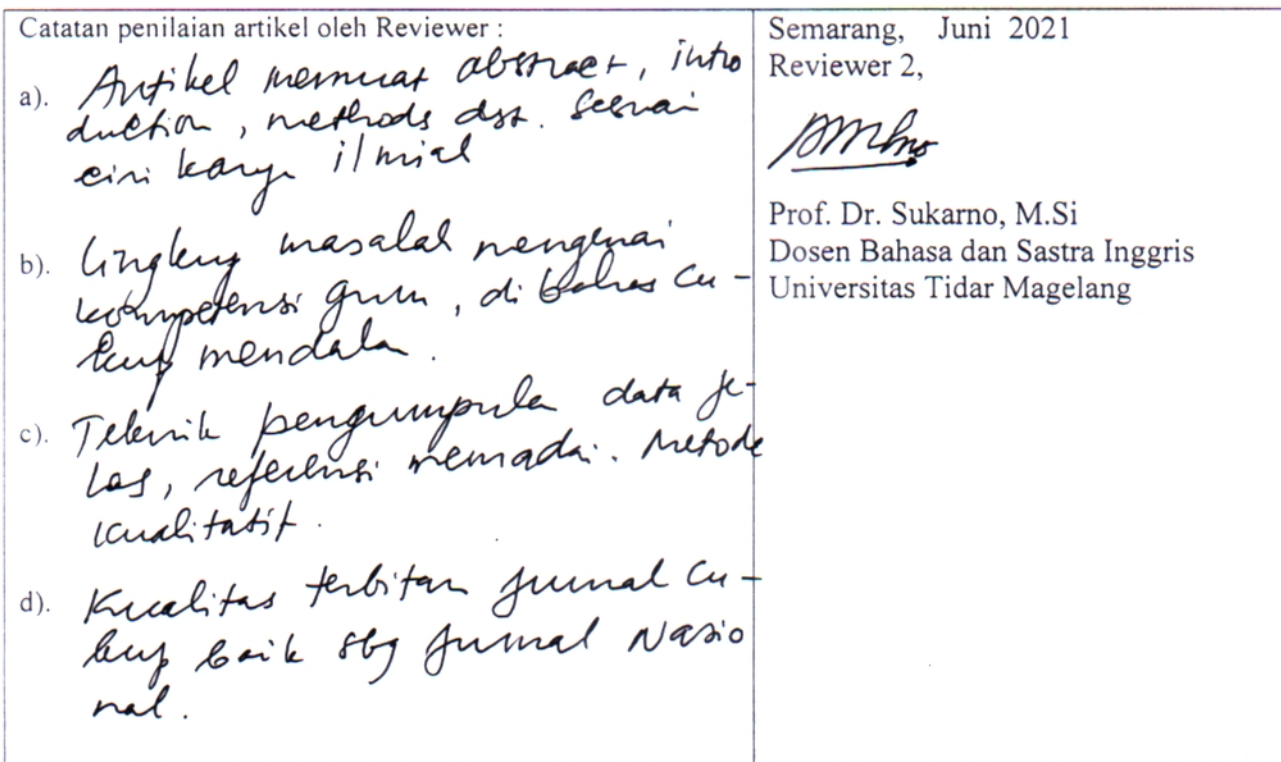 Catatan penilaian artikel oleh Reviewer :
a). Artikel memuat abstract, intro
duction, methods dst. sesuai
ciri karya ilmiah
b). Lingkup masalah mengenai
kompetensi guru, di bahas cu-
kup mendalam.
c). Teknik pengumpulan data je-
las, referensi memadai. Metode
kualitatif.
d). Kualitas terbitan jurnal cu-
kup baik sbg jurnal Nasio
nal.
Semarang, Juni 2021
Reviewer 2,
Prof. Dr. Sukarno, M.Si
Dosen Bahasa dan Sastra Inggris
Universitas Tidar Magelang